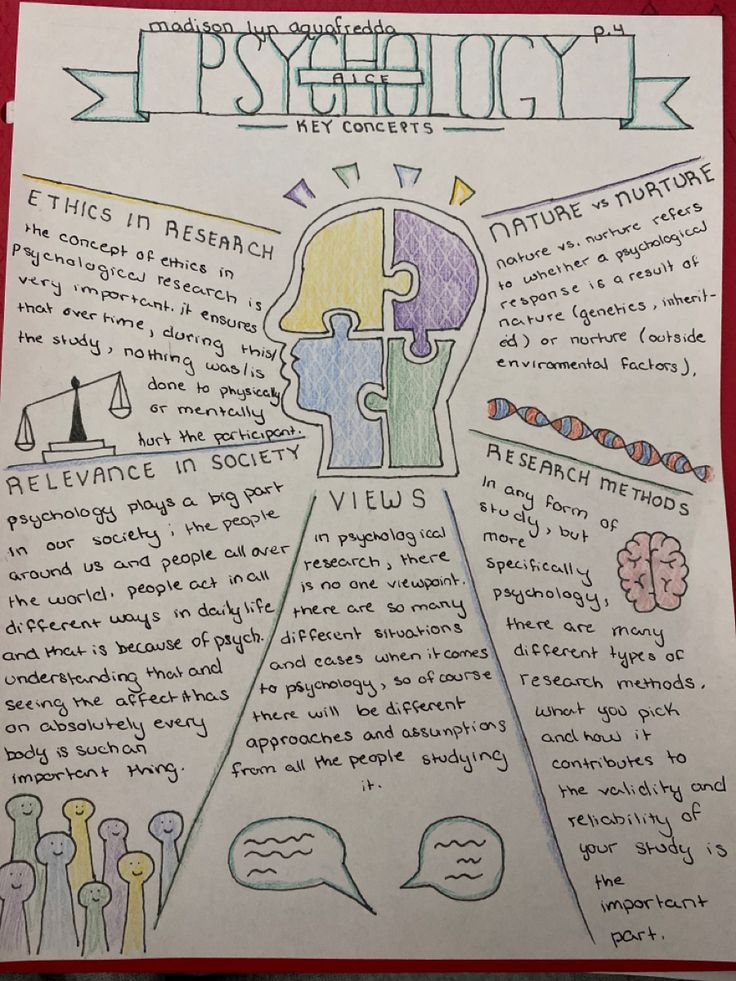 madison lyn aquafredda
p.4
PSYCHOLOGY
AICE
KEY CONCEPTS
ETHICS IN RESEARCH
the concept of ethics in
psychological research is
very important. it ensures
that over time, during this/
the study, nothing was/is
done to physically
or mentally
hurt the participant.
NATURE vs NURTURE
nature vs. nurture refers
to whether a psychological
response is a result of
nature (genetics, inherit-
ed) or nurture (outside
enviromental factors).
RELEVANCE IN SOCIETY
psychology plays a big part
in our society; the people
around us and people all over
the world. people act in all
different ways in daily life
and that is because of psych.
understanding that and
seeing the affect it has
on absolutely every
body is such an
important thing.
VIEWS
in psychological
research, there
is no one viewpoint.
there are so many
different situations
and cases when it comes
to psychology, so of course
there will be different
approaches and assumptions
from all the people studying
it.
RESEARCH METHODS
in any form of
study, but
more
specifically
psychology,
there are many
different types of
research methods.
what you pick
and how it
contributes to
the validity and
reliability of
your study is
the
important
part.